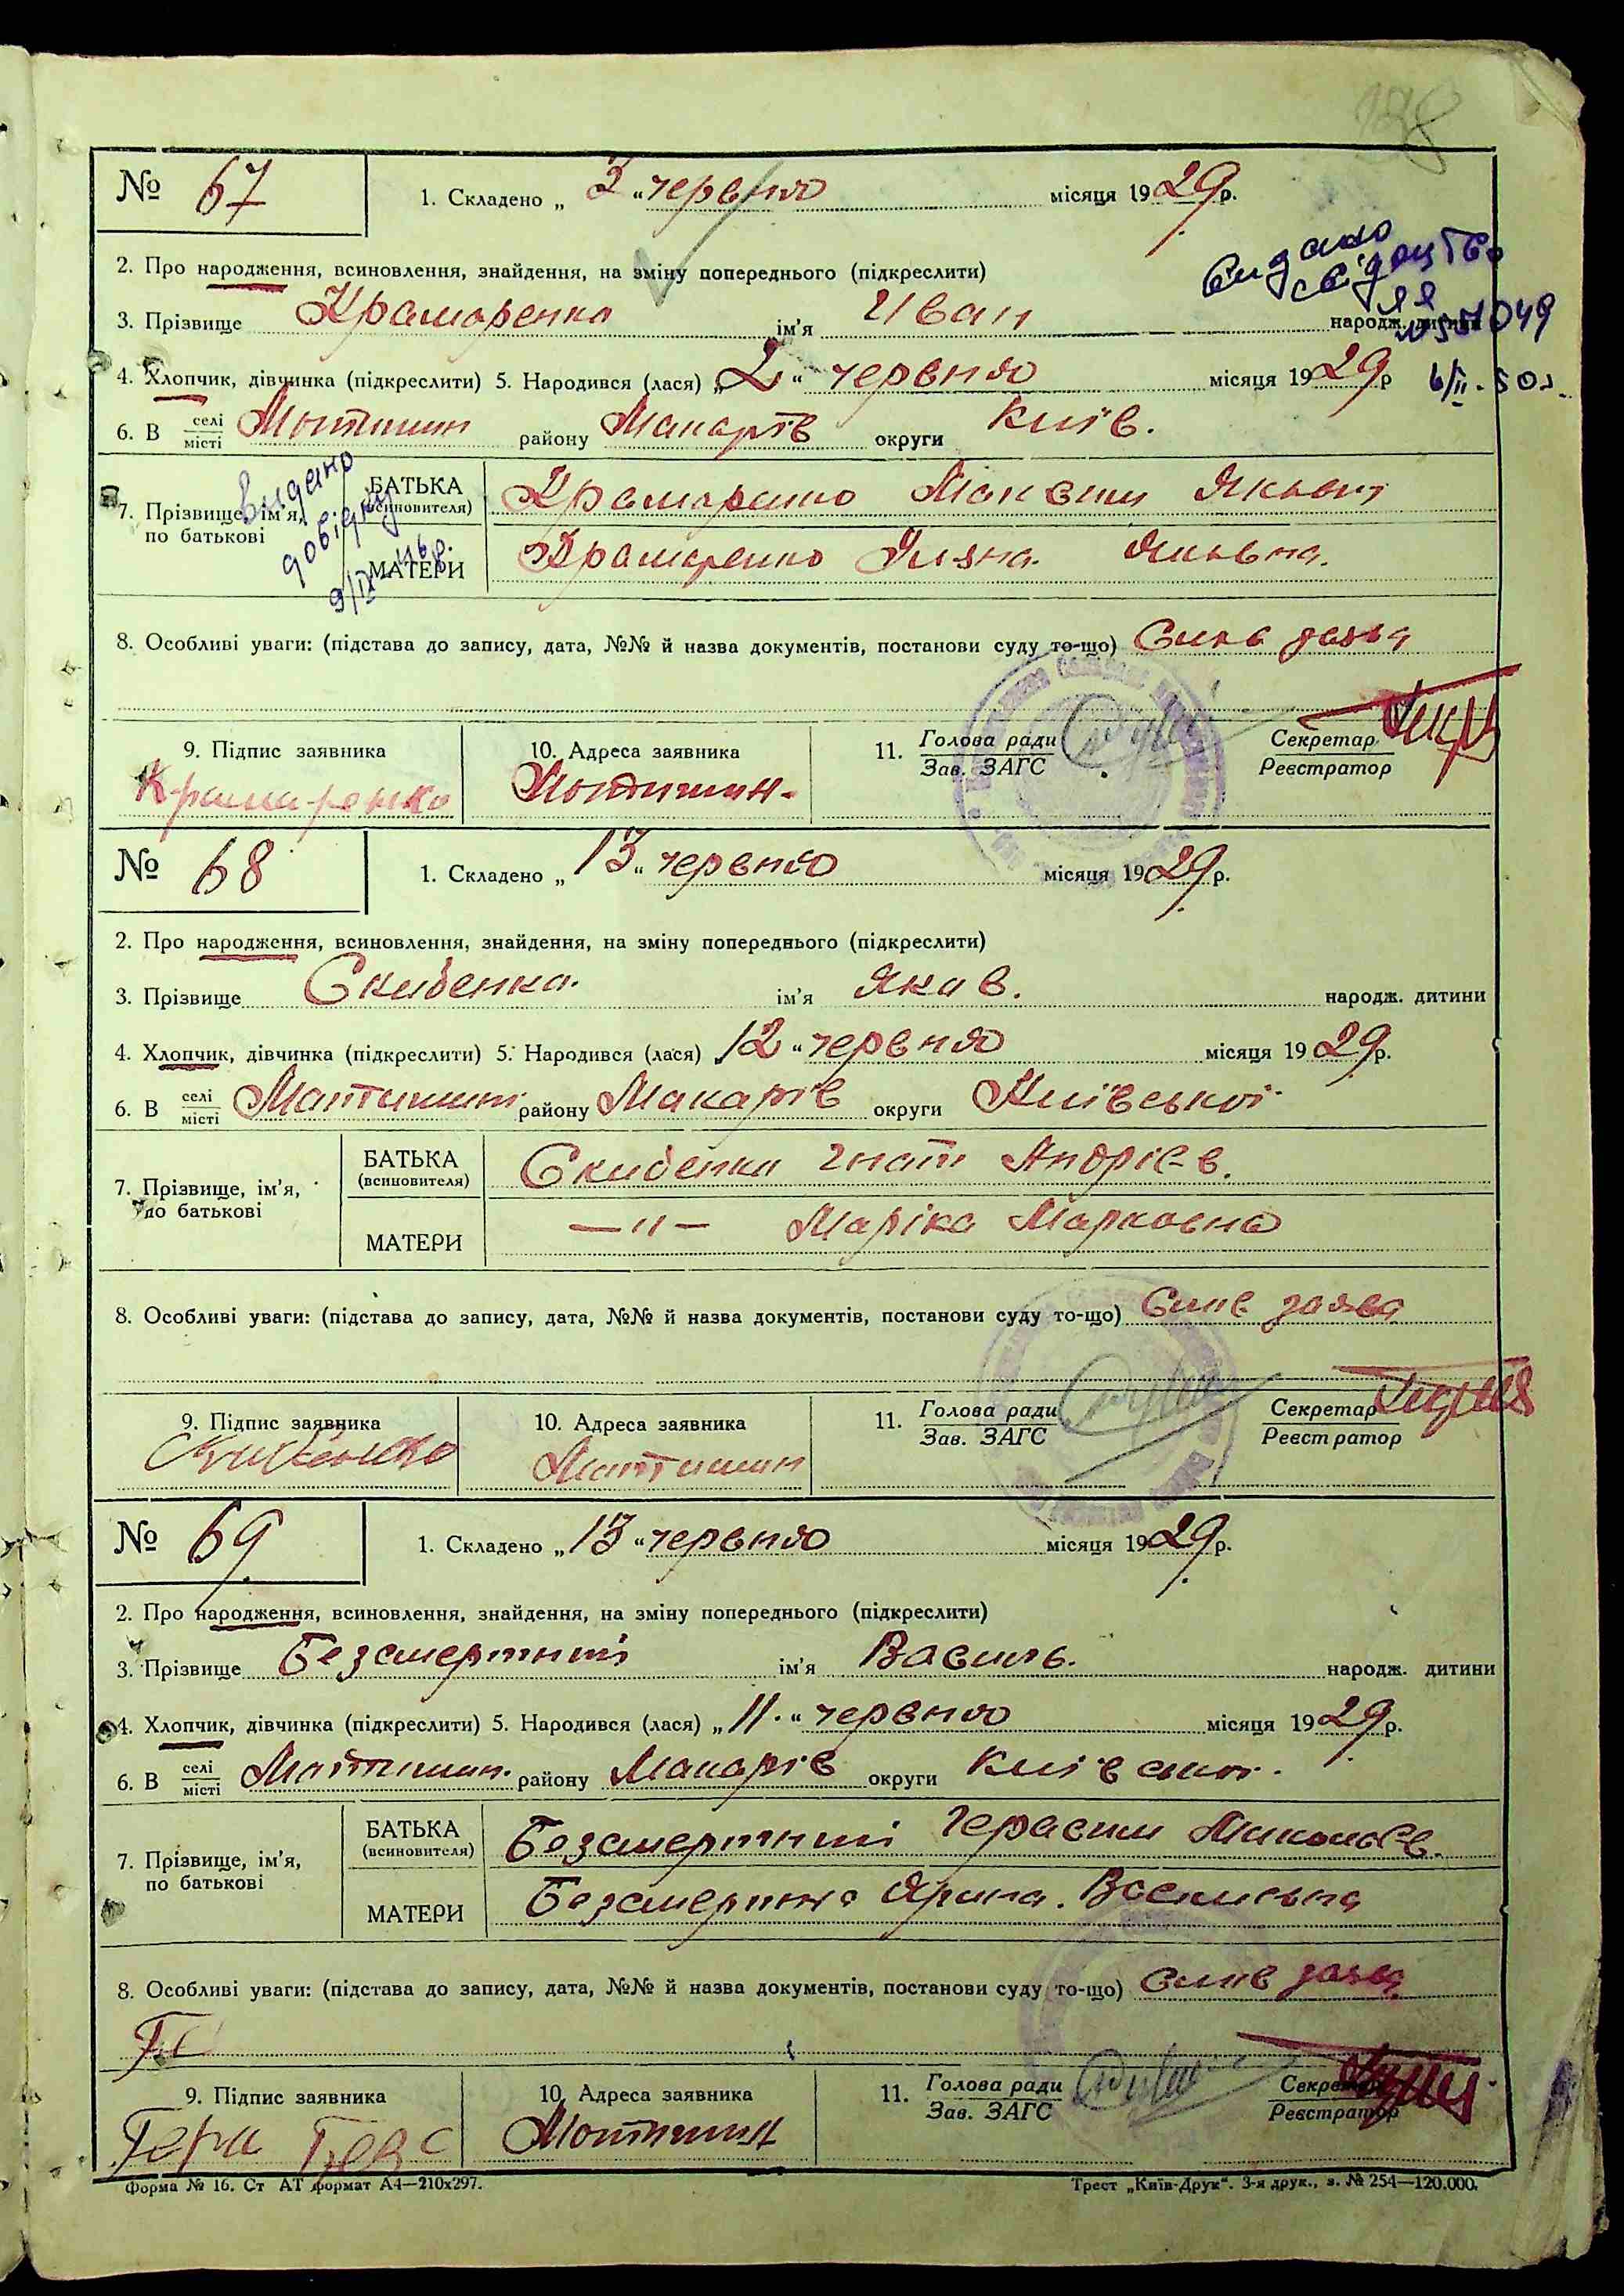 198
№ 67
1. Складено „ 3 “ червня місяця 1929 р.
2. Про народження, всиновлення, знайдення, на зміну попереднього (підкреслити)
видано свідоцтво
ЯЯ
3. Прізвище Крамаренко ім’я Иван народж. дитини
4. Хлопчик, дівчинка (підкреслити) 5. Народився (лася) „ 2 “ червня місяця 1929 р
6/II - 50 г.
6. В селі/місті Мотижин району Макарів округи Київ.
видано довідку 9/IV 46 р.
7. Прізвище, ім’я, по батькові
БАТЬКА (всиновителя) Крамаренко Максим Яковл
МАТЕРИ Крамаренко Уляна Яківна.
8. Особливі уваги: (підстава до запису, дата, №№ й назва документів, постанови суду то-що) Слив заява
9. Підпис заявника 10. Адреса заявника 11. Голова ради/Зав. ЗАГС Секретар/Реєстратор
Крамаренко Мотижин.
№ 68
1. Складено „ 13 “ червня місяця 1929 р.
2. Про народження, всиновлення, знайдення, на зміну попереднього (підкреслити)
3. Прізвище Скибенко. ім’я Яков. народж. дитини
4. Хлопчик, дівчинка (підкреслити) 5. Народився (лася) 12 “ червня місяця 1929 р.
6. В селі/місті Мотижині району Макарів округи Київської
7. Прізвище, ім’я, по батькові
БАТЬКА (всиновителя) Скибенко Гнат Андрієв.
МАТЕРИ —"— Маріка Марковна
8. Особливі уваги: (підстава до запису, дата, №№ й назва документів, постанови суду то-що) Слив заява
9. Підпис заявника 10. Адреса заявника 11. Голова ради/Зав. ЗАГС Секретар/Реєстратор
Скибенко Мотижин
№ 69
1. Складено „ 13 “ червня місяця 1929 р.
2. Про народження, всиновлення, знайдення, на зміну попереднього (підкреслити)
3. Прізвище Безсмертний ім’я Василь. народж. дитини
4. Хлопчик, дівчинка (підкреслити) 5. Народився (лася) „ 11. “ червня місяця 1929 р.
6. В селі/місті Мотижин. району Макарів округи Київської.
7. Прізвище, ім’я, по батькові
БАТЬКА (всиновителя) Безсмертний Герасим Миколаєв.
МАТЕРИ Безсмертна Ярина. Василівна
8. Особливі уваги: (підстава до запису, дата, №№ й назва документів, постанови суду то-що) Слив заява
9. Підпис заявника 10. Адреса заявника 11. Голова ради/Зав. ЗАГС Секретар/Реєстратор
Гера Безс Мотижин
Форма № 16. Ст АТ формат А4—210х297. Трест „Київ-Друк“. 3-я друк., з. № 254—120.000.